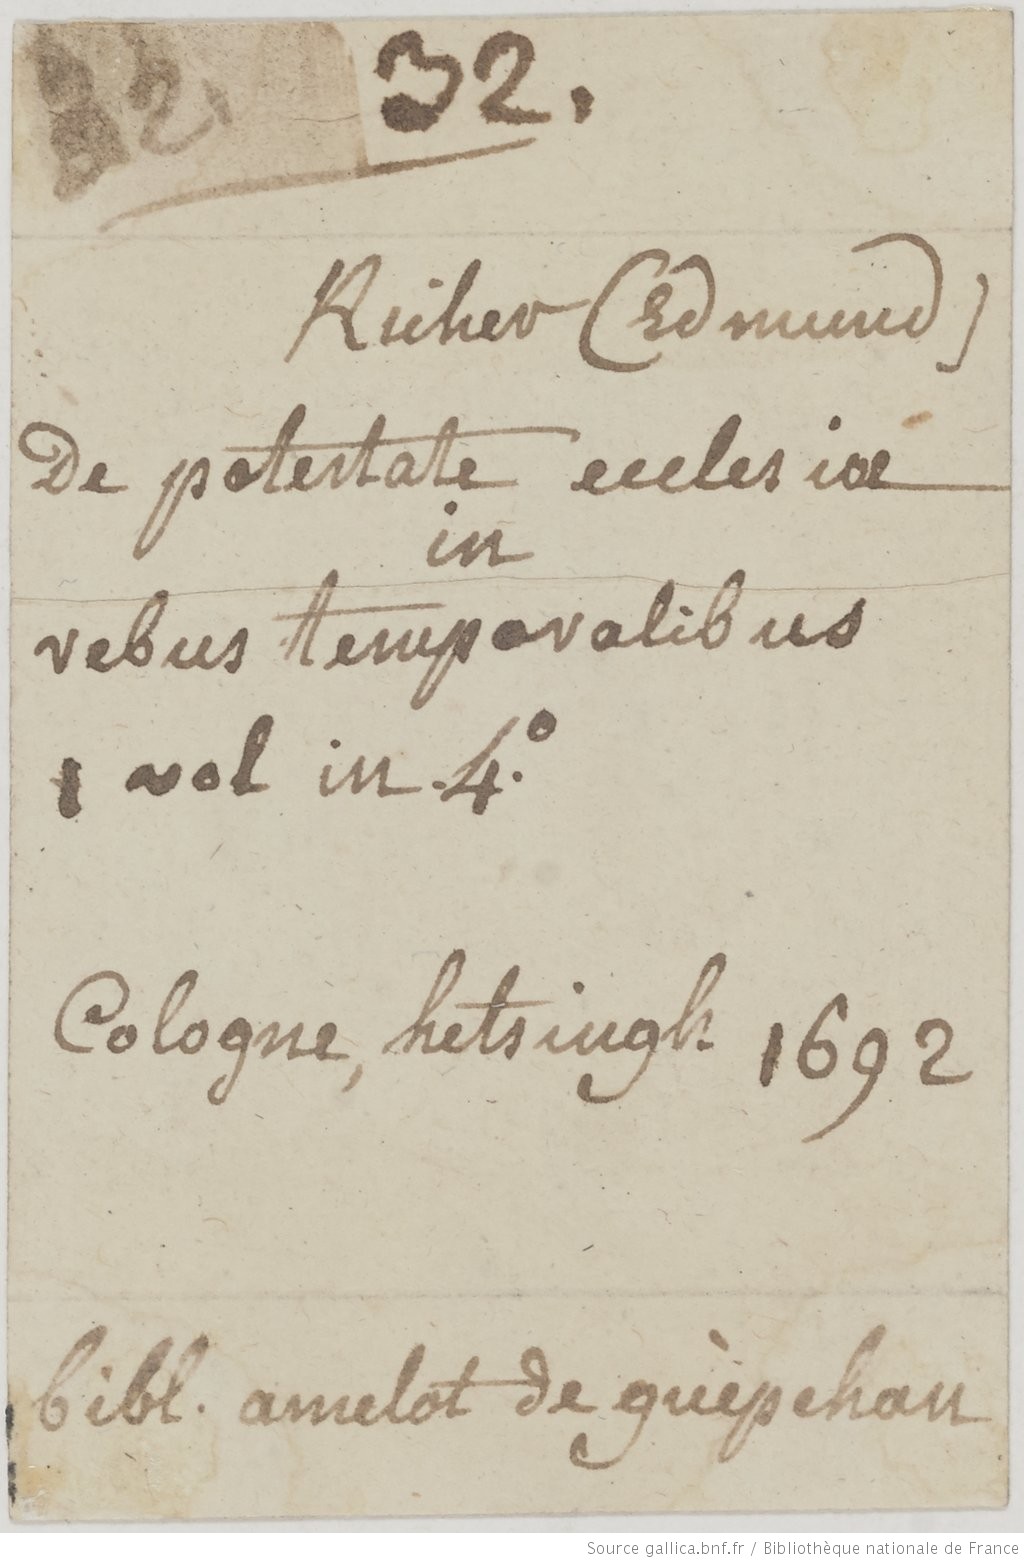 32.
2,
Richer (Edmund)
De potestate ecclesiæ
in
rebus temporalibus
1 vol in-4.º
Cologne, hetsingk 1692
bibl. amelot de guèpehan
Source gallica.bnf.fr / Bibliothèque nationale de France